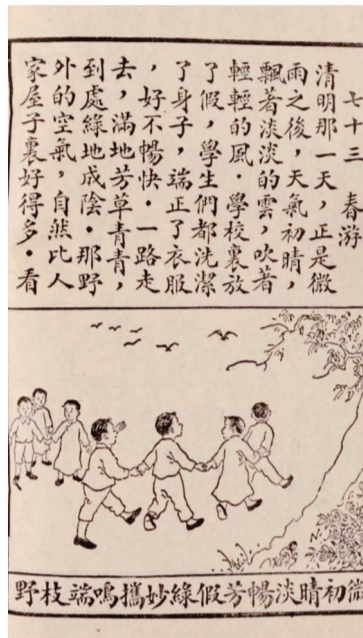 七十三　春游
清明那一天，正是微
雨之後，天氣初晴，
飄著淡淡的雲，吹著
輕輕的風．學校裏放
了假，學生們都洗潔
了身子，端正了衣服
，好不暢快．一路走
去，滿地芳草青青，
到處綠地成陰．那野
外的空氣，自然比人
家屋子裏好得多．看
微初晴淡暢芳假綠妙攜鳴端枝野